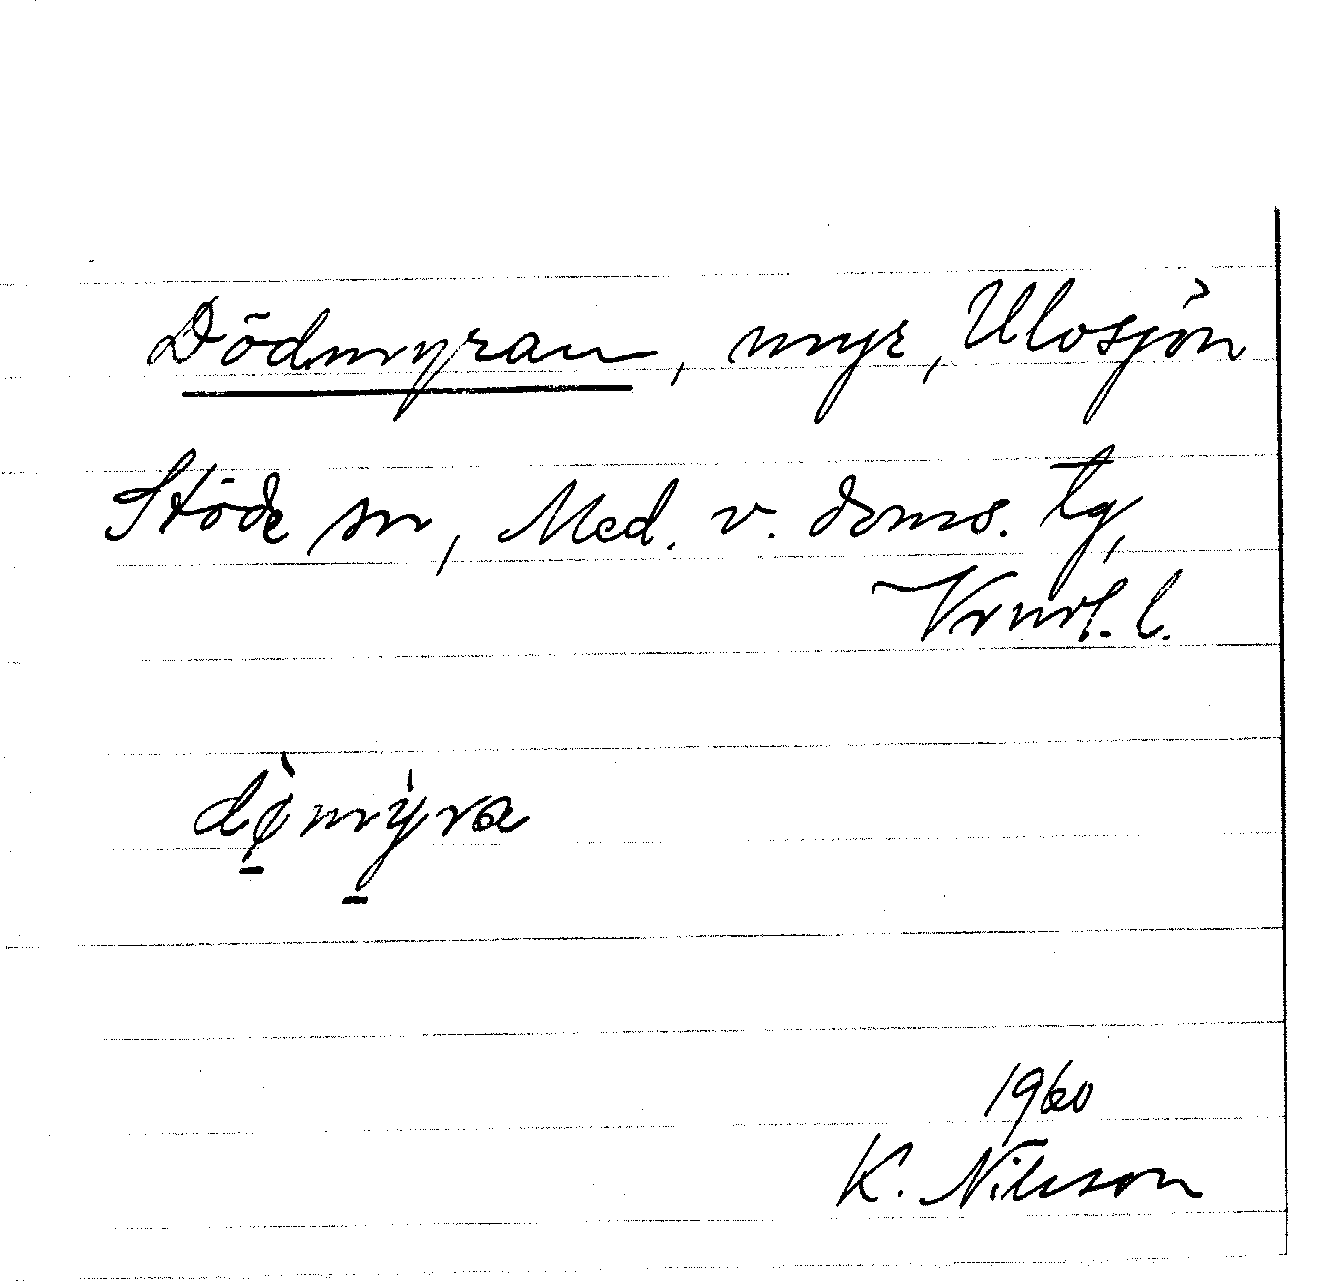 Dödmyran, myr, Ulosjön
Stöde sn, Med. v. doms. tg,
Vrnrl. l.
dø̣̀mýra
1960
K. Nilsson